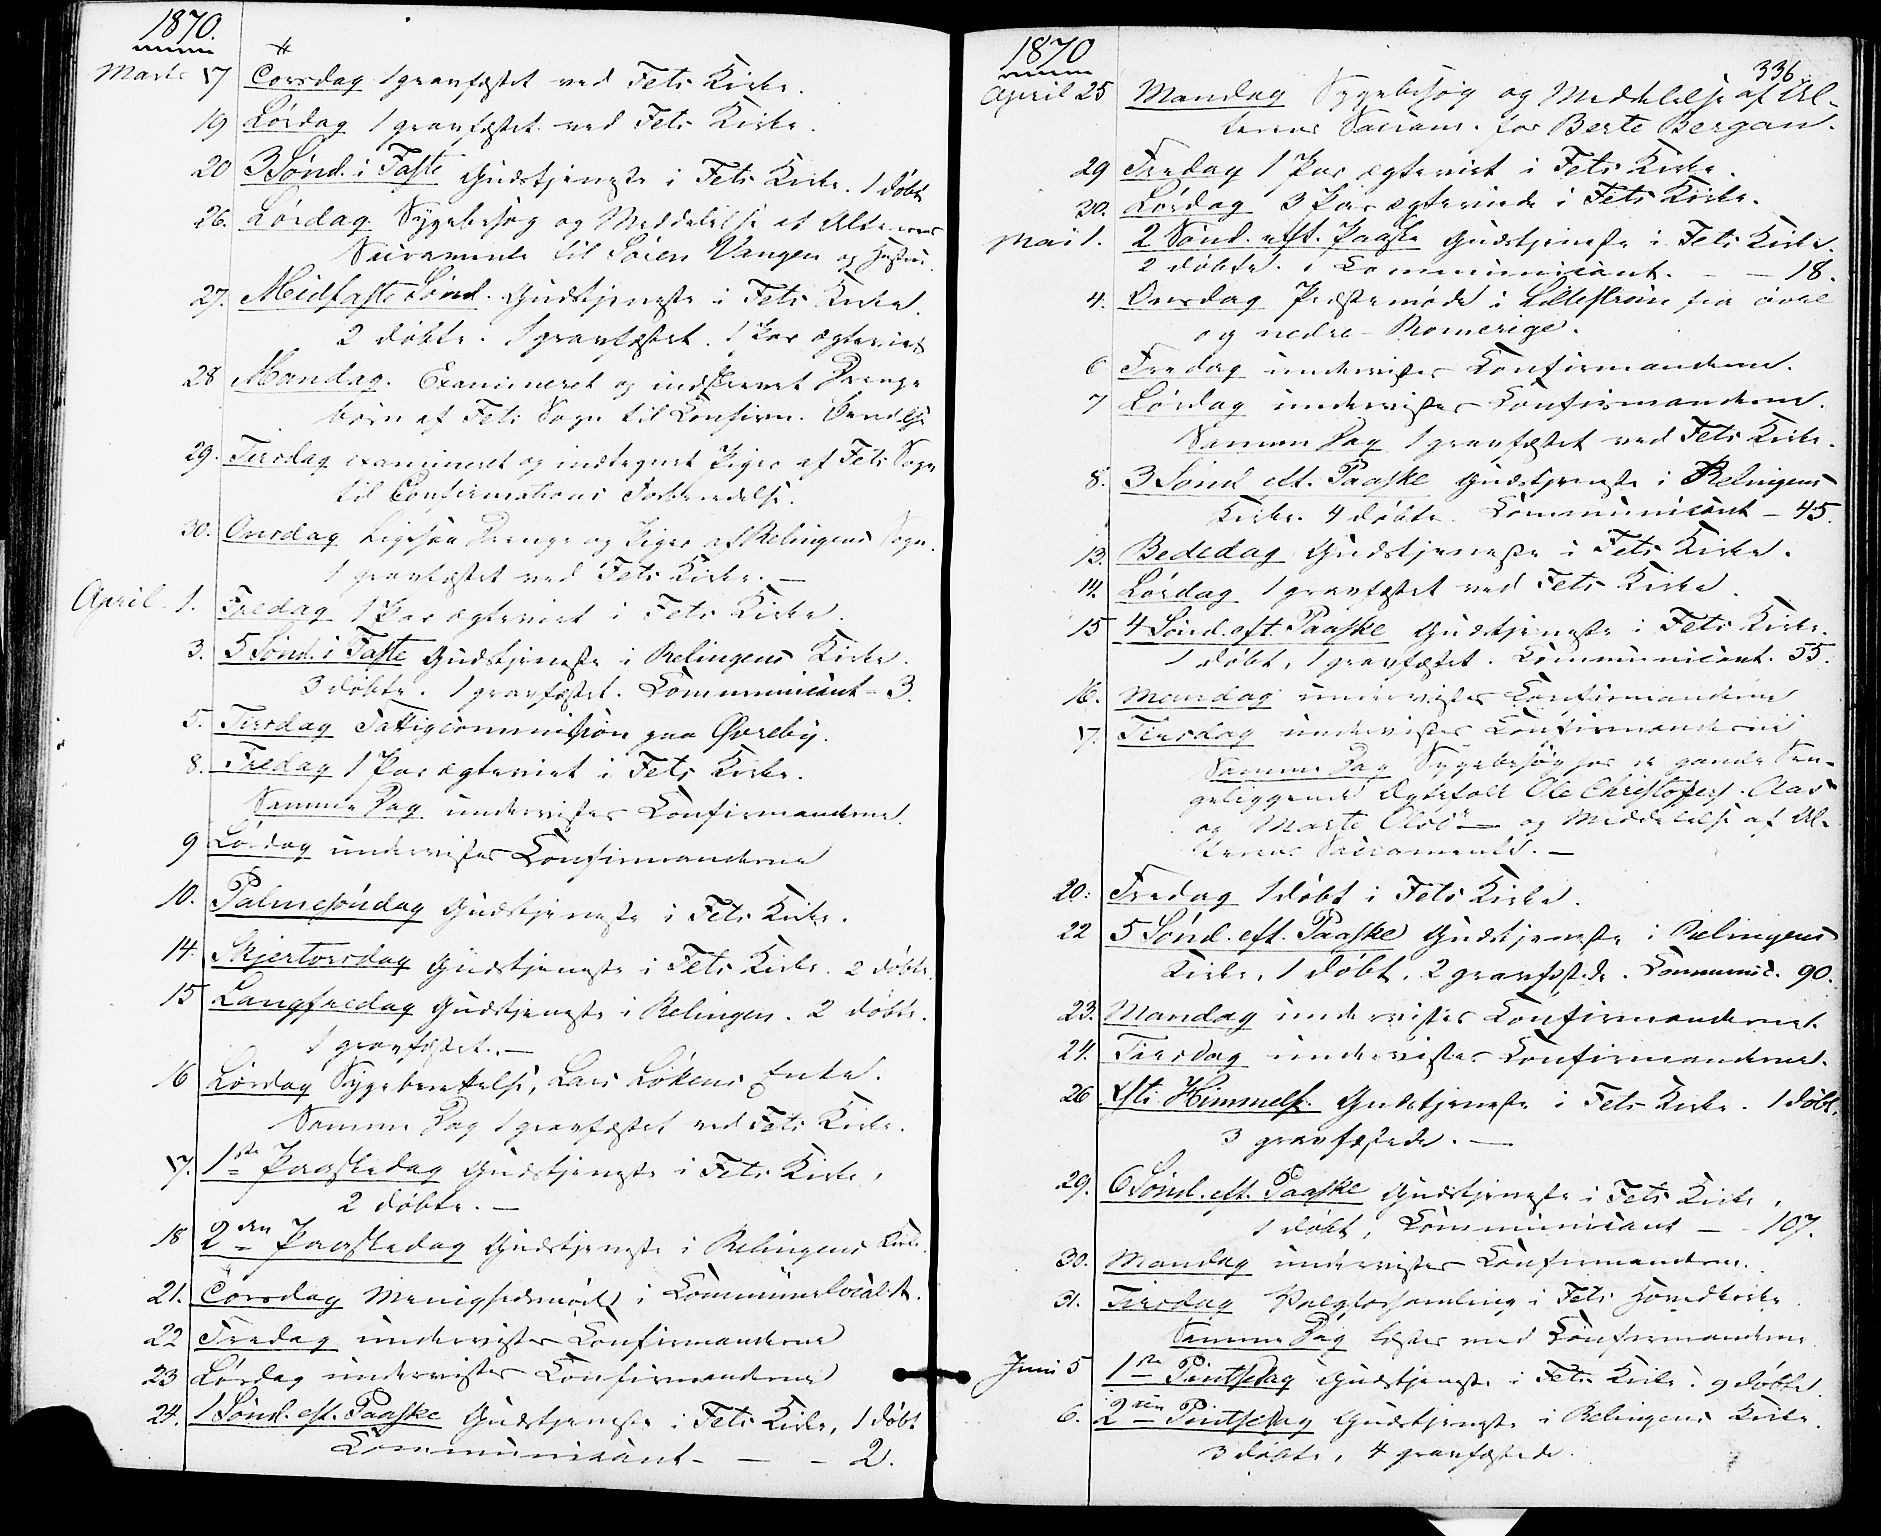 1870.
Marts 17 Torsdag 1 gravfæstet ved Fets Kirke.
19 Lördag 1 gravfæstet ved Fets Kirke.
20 3 Sønd. i Faste Gudstjeneste i Fets Kirke. 1 döbt
26. Lördag Sygebesög og Meddelelse af Alterens
Sacramente til Sören Vangen og Hustru.
27. Midfaste Sönd. Gudstjeneste i Fets Kirke.
2 döbte. 1 gravfæstet. 1 Par ægteviet
28 Mandag. Examineret og indskrevet Drenge
börn af Fets Sogn til Confirm.
29. Tirsdag examineret og indtegnet Piger af Fets Sogn
til Confirmations Forberedelse.
30. Onsdag Ligesaa Drenge og Piger af Relingens Sogn.
1 gravfæstet ved Fets Kirke. —
April 1. Fredag 1 Par ægteviet i Fets Kirke.
3. 5 Sönd. i Faste Gudstjeneste i Relingens Kirke.
3 döbte. 1 gravfæstet. Communicant - 3.
5. Tirsdag Fattigcommission paa Øvreby.
8. Fredag 1 Par ægteviet i Fets Kirke.
Samme Dag undervistes Confirmanderne.
9 Lördag undervistes Confirmanderne
10. Palmesöndag Gudstjeneste i Fets Kirke.
14. Skjertorsdag Gudstjeneste i Fets Kirke. 2 döbte.
15 Langfredag Gudstjeneste i Relingen. 2 döbte.
1 gravfæstet. —
16 Lördag Sygeberettelse, Lars Lökens Enke.
Samme Dag 1 gravfæstet ved Fets Kirke.
17. 1ste Paaskedag Gudstjeneste i Fets Kirke,
2 döbte. —
18 2den Paaskedag Gudstjeneste i Relingens Kirke.
21. Torsdag Menighedsmöde i Communelocalet.
22 Fredag undervistes Confirmanderne
23 Lördag undervistes Confirmanderne
24. 1 Sönd. eft. Paaske Gudstjeneste i Fets Kirke, 1 döbt
Communicant - — - 2.
1870
336
April 25 Mandag Sygebesög og Meddelelse af Al-
terens Sacram. for Berte Bergan.
29 Fredag 1 Par ægteviet i Fets Kirke.
30. Lördag 3 Par ægteviede i Fets Kirke.
Mai 1. 2 Sönd. eft. Paaske Gudstjeneste i Fets Kirke.
2 döbte. Communicant. — — 18.
4. Onsdag Præstemöde i Lilleström for övre
og nedre Romerige.
6 Fredag undervistes Confirmanderne.
7 Lördag undervistes Confirmanderne.
Samme Dag 1 gravfæstet ved Fets Kirke.
8. 3 Sönd eft. Paaske Gudstjeneste i Relingens
Kirke. 4 döbte. Communicant - 45.
13. Bededag Gudstjeneste i Fets Kirke.
14. Lördag 1 gravfæstet ved Fets Kirke.
15 4 Sönd. eft. Paaske Gudstjeneste i Fets Kirke.
1 döbt, 1 gravfæstet. Communicant. 55.
16. Mandag undervistes Confirmanderne
17. Tirsdag undervistes Confirmanderne
Samme Dag Sygebesög hos de gamle Sen-
geliggende Ægtefolk Ole Christofers. Aas
og Marte Olsdr — og Meddelelse af Al-
terens Sacramente. —
20. Fredag 1 döbt i Fets Kirke.
22 5 Sönd. eft. Paaske Gudstjeneste i Relingens
Kirke, 1 döbt, 2 gravfæstede. Communic. 90.
23. Mandag undervistes Confirmanderne.
24. Tirsdag undervistes Confirmanderne.
26 Xsti Himmelf. Gudstjeneste i Fets Kirke. 1 döbt,
3 gravfæstede. —
29. 6 Sönd. eft. Paaske Gudstjeneste i Fets Kirke,
1 döbt, Communicant — - 107.
30. Mandag undervistes Confirmanderne.
31. Tirsdag Valgforsamling i Fets Hovedkirke.
Samme Dag læstes med Confirmanderne
Juni 5 1ste Pintsedag Gudstjeneste i Fets Kirke. 9 döbte.
6. 2den Pintsedag Gudstjeneste i Relingens Kirke.
3 döbte, 4 gravfæstede.